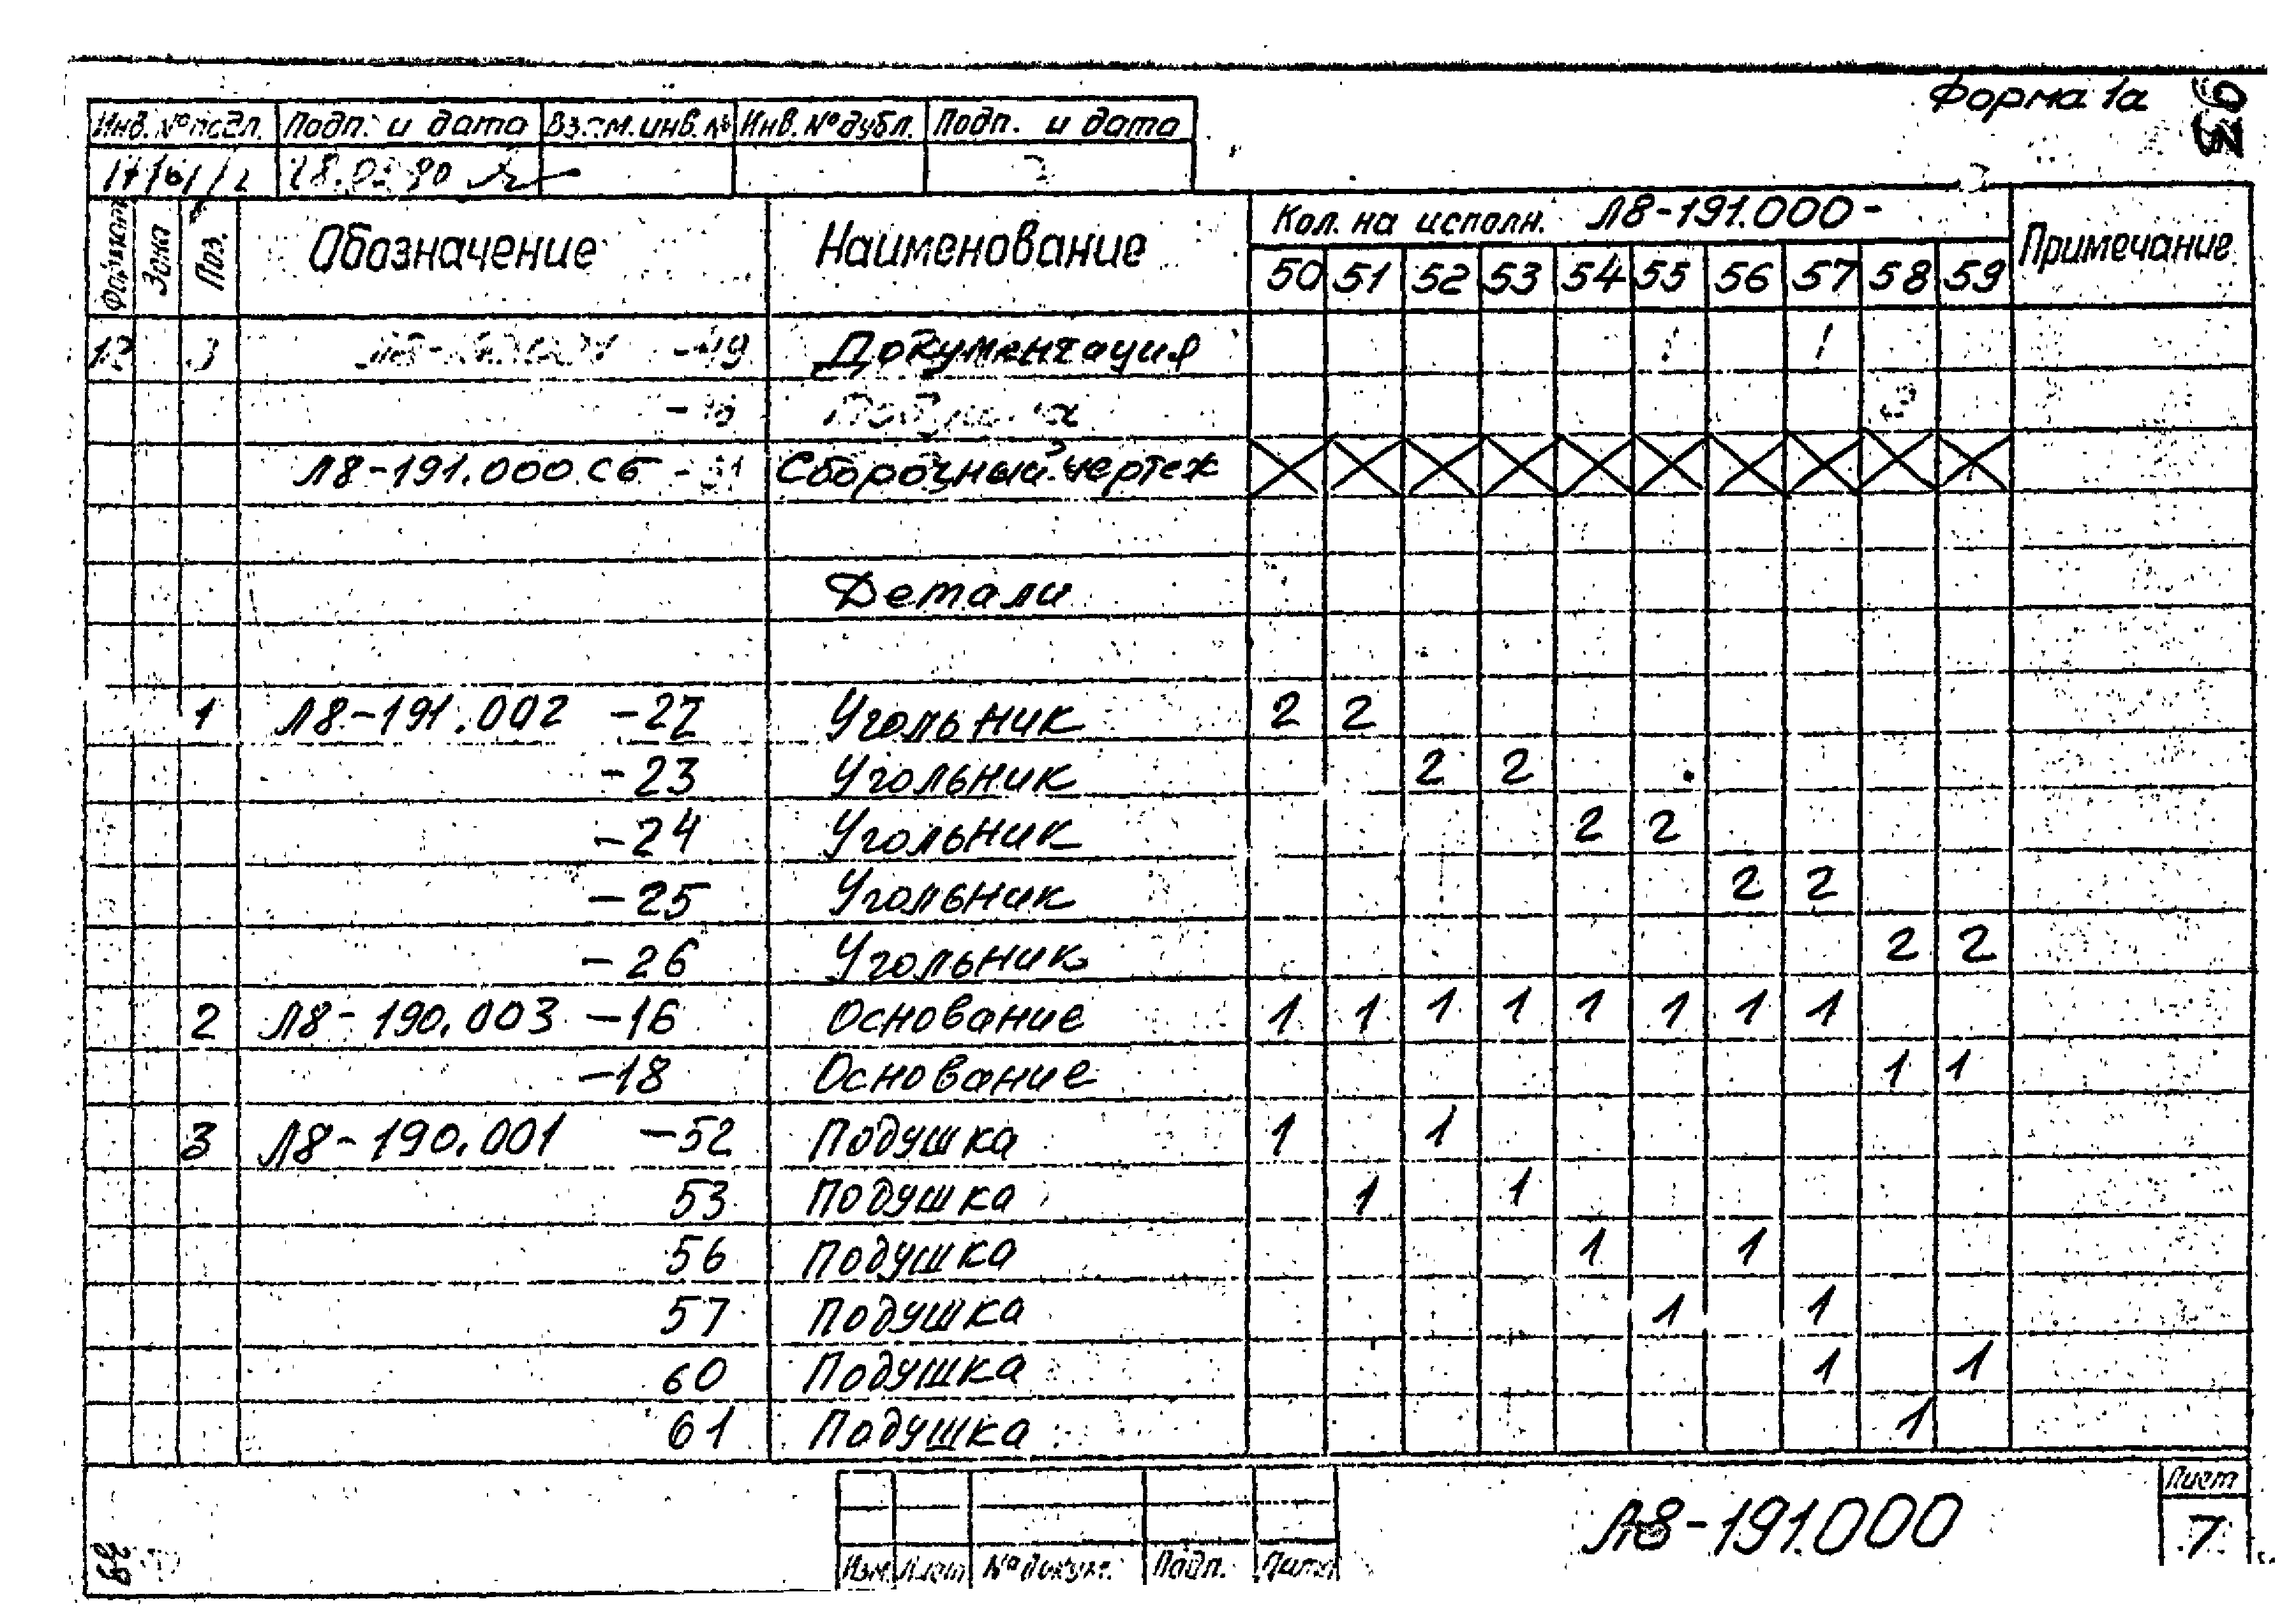 Форма 1а
Инв. № подл. Подп. и дата Взам. инв. № Инв. № дубл. Подп. и дата
Формат Зона Поз. Обозначение Наименование Кол. на исполн. Л8-191.000- Примечание
50 51 52 53 54 55 56 57 58 59
Документация
Л8-191.000 СБ Сборочный чертеж
Детали
1 Л8-191.002 -22 Угольник 2 2
-23 Угольник 2 2
-24 Угольник 2 2
-25 Угольник 2 2
-26 Угольник 2 2
2 Л8-190.003 -16 Основание 1 1 1 1 1 1 1 1
-18 Основание 1 1
3 Л8-190.001 -52 Подушка 1 1
53 Подушка 1 1
56 Подушка 1 1
57 Подушка 1 1
60 Подушка 1 1
61 Подушка 1
Изм. Лист № докум. Подп. Дата
Л8-191.000
Лист
7